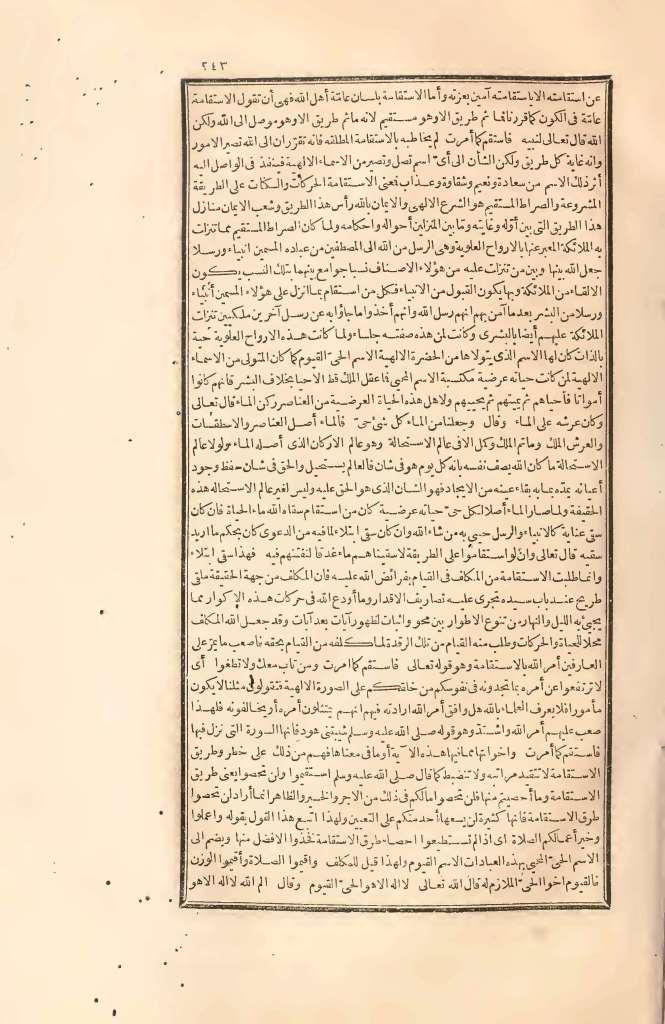 ٢٤٣
عن استقامته الا باستقامته آمين بعزته وأما الاستقامة بلسان عامّة أهل الله فهى أن تقول الاستقامة
عامّة فى الكون كما قررناه فما ثم طريق الا وهو مستقيم لانه ما ثم طريق الا وهو موصل الى الله ولكن
الله قال تعالى لنبيه فاستقم كما أمرت لم يخاطبه بالاستقامة المطلقة فانه تقرّر ان الى الله تصير الامور
وانه غاية كل طريق ولكن الشأن الى أىّ اسم تصل وتصير من الاسماء الالهية فينفذ فى الواصل اليه
أثر ذلك الاسم من سعادة ونعيم وشقاوة وعذاب فمعنى الاستقامة الحركات والسكنات على الطريقة
المشروعة والصراط المستقيم هو الشرع الالهى والايمان بالله رأس هذا الطريق وشعب الايمان منازل
هذا الطريق التى بين أوّله وغايته وما بين المنزلين أحواله واحكامه ولما كان الصراط المستقيم مما تنزلت
به الملائكة المعبر عنها بالارواح العلوية وهى الرسل من الله الى المصطفين من عباده المسمين انبياء ورسلا
جعل الله بينها وبين من تنزلت عليه من هؤلاء الاصناف نسبا جوامع بينهما بتلك النسب يكون
الالقاء من الملائكة وبها يكون القبول من الانبياء فكل من استقام بما انزل على هؤلاء المسمين أنبياء
ورسلا من البشر بعدما آمن بهم انهم رسل الله وانهم أخذوا ما جاؤا به عن رسل آخرين ملكيين تنزلت
الملائكة عليهم أيضا بالبشرى وكانت لمن هذه صفته جلساء ولما كانت هذه الارواح العلوية حية
بالذات كان لها الاسم الذى يتولاها من الحضرة الالهية الاسم الحىّ القيوم كما كان المتولى من الاسماء
الالهية لمن كانت حياته عرضية مكتسبة الاسم المحيى فما عقل الملك قط الاحيا بخلاف البشر فانهم كانوا
أمواتا فأحياهم ثم يميتهم ثم يحييهم ولاهل هذه الحياة العرضية من العناصر ركن الماء قال تعالى
وكان عرشه على الماء وقال وجعلنا من الماء كل شئ حىّ فالماء أصل العناصر والاسطقسات
والعرش الملك وما تم الملك وكمل الا فى عالم الاستحالة وهو عالم الاركان الذى أصله الماء ولولا عالم
الاستحالة ما كان الله يصف نفسه بانه كل يوم هو فى شان فالعالم يستحيل والحق فى شان حفظ وجود
أعيانه يمدّه بما به بقاء عينه من الايجاد فهو الشان الذى هو الحق عليه وليس لغير عالم الاستحالة هذه
الحقيقة ولما صار الماء أصلا لكل حىّ حياته عرضية كان من استقام سقاه الله ماء الحياة فان كان
سقى عناية كالانبياء والرسل حيى به من شاء الله وان كان سقى ابتلاء لما فيه من الدعوى كان بحكم ما اريد
سقيه قال تعالى وأن لو استقاموا على الطريقة لاسقيناهم ماء غدقا لنفتنهم فيه فهذا سقى ابتلاء
وانما طلبت الاستقامة من المكلف فى القيام بفرائض الله عليه فان المكلف من جهة الحقيقة ملقى
طريح عند باب سيده تجرى عليه تصاريف الاقدار وما أودع الله فى حركات هذه الاكوار مما
يجىء به الليل والنهار من تنوع الاطوار بين محو واثبات لظهور آيات بعد آيات وقد جعل الله المكلف
محلا للحياة والحركات وطلب منه القيام من تلك الرقدة لما كلفه من القيام بحقه فاصعب ما يمرّ على
العارفين أمر الله بالاستقامة وهو قوله تعالى فاستقم كما امرت ومن تاب معك ولا تطغوا أى
لا ترتفعوا عن أمره بما تجدونه فى نفوسكم من خلقكم على الصورة الالهية فتقولوا مثلنا لا يكون
مأمورا فلا يعرف العلماء بالله هل وافق أمر الله ارادته فيهم انهم يمتثلون أمره أو يخالفونه فلهذا
صعب عليهم أمر الله واشتدّ وهو قوله صلى الله عليه وسلم شيبتنى هود فانها السورة التى نزل فيها
فاستقم كما أمرت واخواتها مما فيها هذه الآية أو ما فى معناها فهم من ذلك على خطر وطريق
الاستقامة لا تتقيد مراتبه ولا تنضبط كما قال صلى الله عليه وسلم استقيموا ولن تحصوا يعنى طريق
الاستقامة وما أحصيتم منها فلن تحصوا ما لكم فى ذلك من الاجر والخير والظاهر انما أراد لن تحصوا
طرق الاستقامة فانها كثيرة لن يسعها أحد منكم على التعيين ولهذا اتبع هذا القول بقوله واعملوا
وخير أعمالكم الصلاة اى اذا لم تستطيعوا احصاء طرق الاستقامة فخذوا الافضل منها ويضم الى
الاسم الحىّ المحيى بهذه العبادات الاسم القيوم ولهذا قيل للمكلف واقيموا الصلاة وأقيموا الوزن
فالقيوم اخو الحىّ الملازم له قال الله تعالى لا اله الا هو الحىّ القيوم وقال الم الله لا اله الا هو